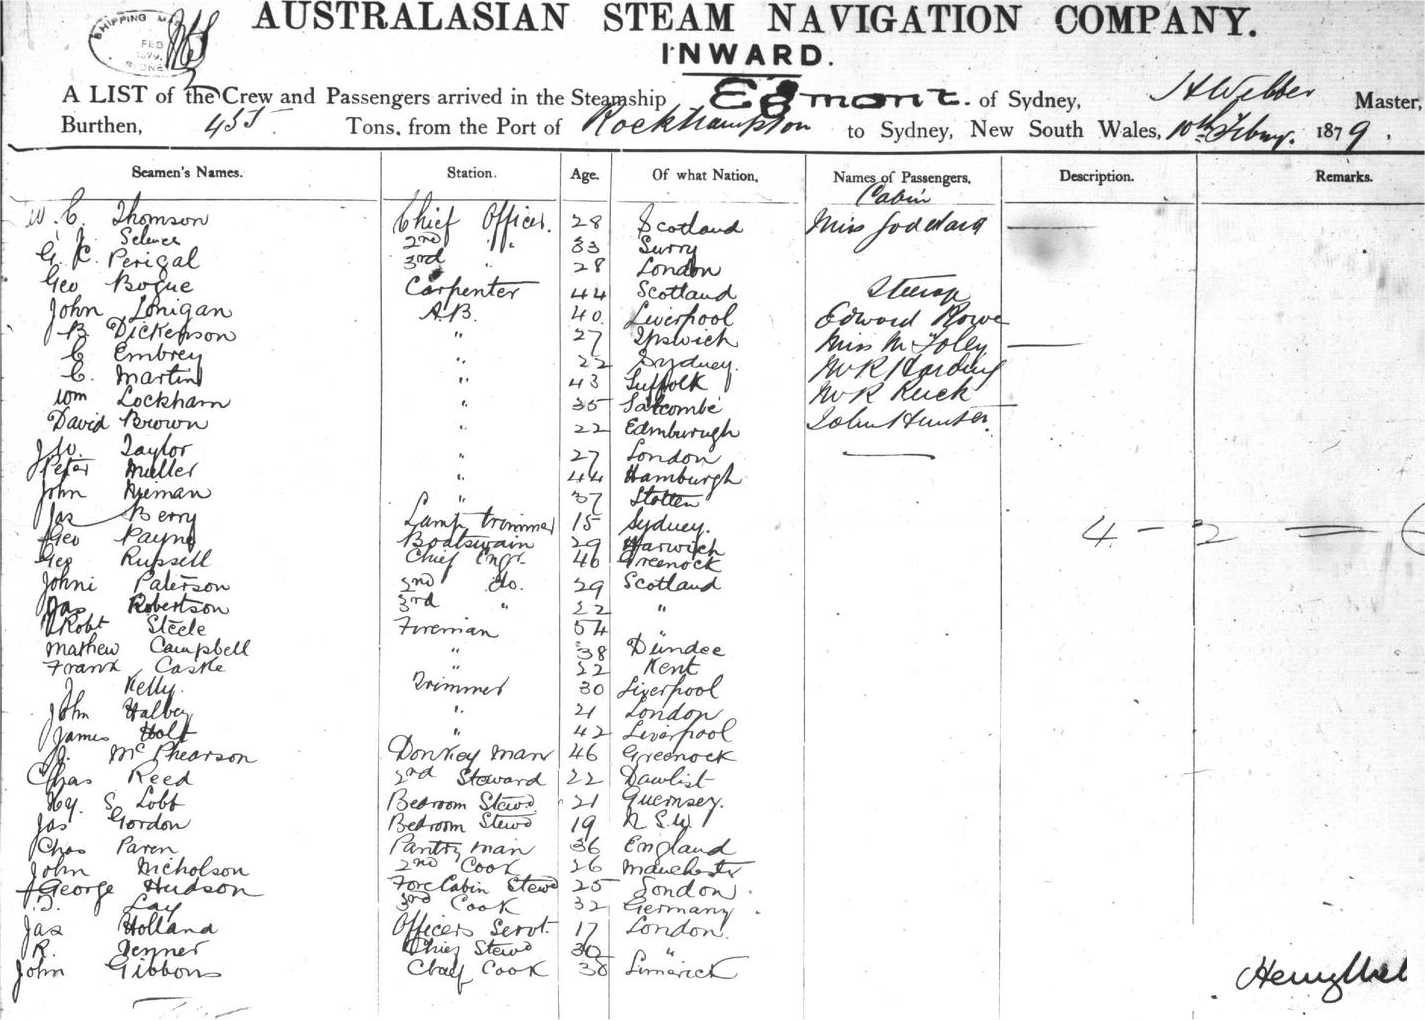 SHIPPING
FEB
AUSTRALASIAN STEAM NAVIGATION COMPANY.
INWARD.
A LIST of the Crew and Passengers arrived in the Steamship Egmont. of Sydney, H Webber Master,
Burthen, 455 Tons, from the Port of Rockhampton to Sydney, New South Wales, 10th Febry. 1879.
Seamen's Names. Station. Age. Of what Nation, Names of Passengers, Description. Remarks.
Cabin
W. C. Thomson Chief Officer. 28 Scotland Miss Goddard
J. 2nd " 33 Surry
G. C. Perigal 3rd " 28 London
Geo Bogue Carpenter 44 Scotland Steerage
John Lonigan A.B. 40 Liverpool Edward Rowe
B Dickenson " 27 Ipswich Miss M Foley
C Embrey " 22 Sydney. Mr R Harding
C. Martin " 43 Suffolk Mr R Ruck
Wm Lockham " 35 Salcombe John Hunter.
David Brown " 22 Edinburugh
J W. Taylor " 27 London
Peter Muller " 44 Hamburgh
John Nieman " 37 Stotten
Jas Berry Lamp trimmer 15 Sydney.
Geo Payne Boatswain 29 Harwich 4 - 2 =
Geo Russell Chief Engr. 46 Greenock
John Paterson 2nd do. 29 Scotland
Jas Robertson 3rd " 22 "
Robt Steele Fireman 54 "
Mathew Campbell " 38 Dundee
Frank Castle " 22 Kent
J Kelly. Trimmer 30 Liverpool
John Halbey " 21 London
James Holt " 42 Liverpool
J. McPhearson Donkey man 46 Greenock
Chas Reed 2nd Steward 22 Dawlist
Hy. S Lobb Bedroom Stewd 21 Guernsey.
Jas Gordon Bedroom Stewd 19 N S.W.
Chas Paren Pantry man 36 England
John Nicholson 2nd Cook 26 Manchester
George Hudson Fore Cabin Stewd 25 London.
Lay 3rd Cook 32 Germany.
Jas Holland Officers Servt. 17 London.
R. Jenner Chief Stewd 30 "
John Gibbons Chief Cook 38 Limerick